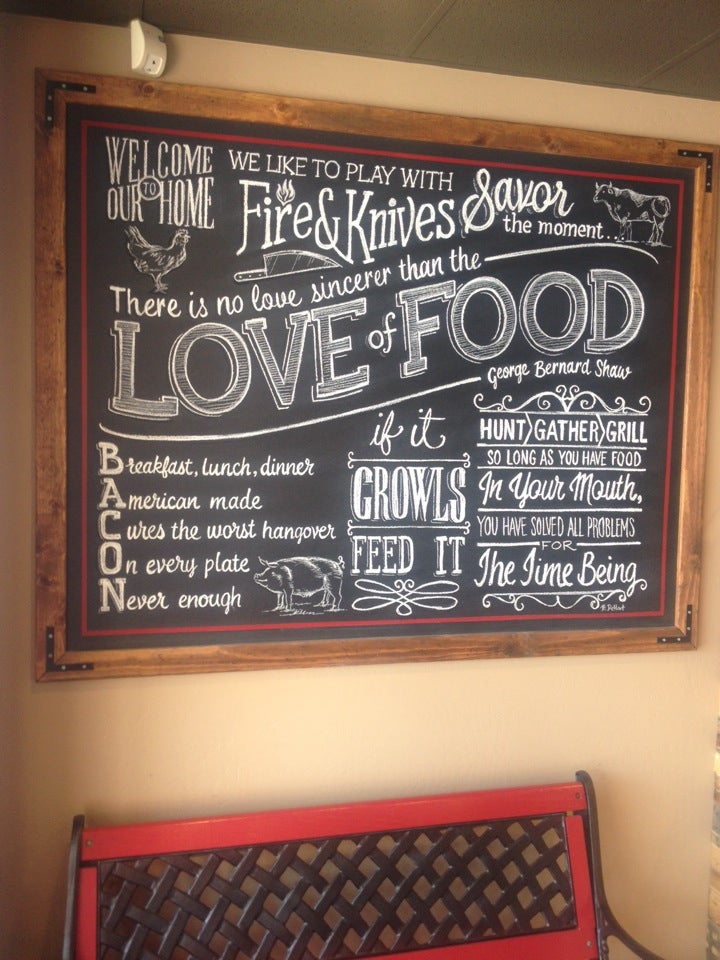 WELCOME
TO
OUR HOME
WE LIKE TO PLAY WITH
Fire & Knives
Savor
the moment...
There is no love sincerer than the
LOVE of FOOD
George Bernard Shaw
Breakfast, lunch, dinner
American made
Cures the worst hangover
On every plate
Never enough
if it
GROWLS
FEED IT
HUNT GATHER GRILL
SO LONG AS YOU HAVE FOOD
In Your Mouth,
YOU HAVE SOLVED ALL PROBLEMS
FOR
The Time Being